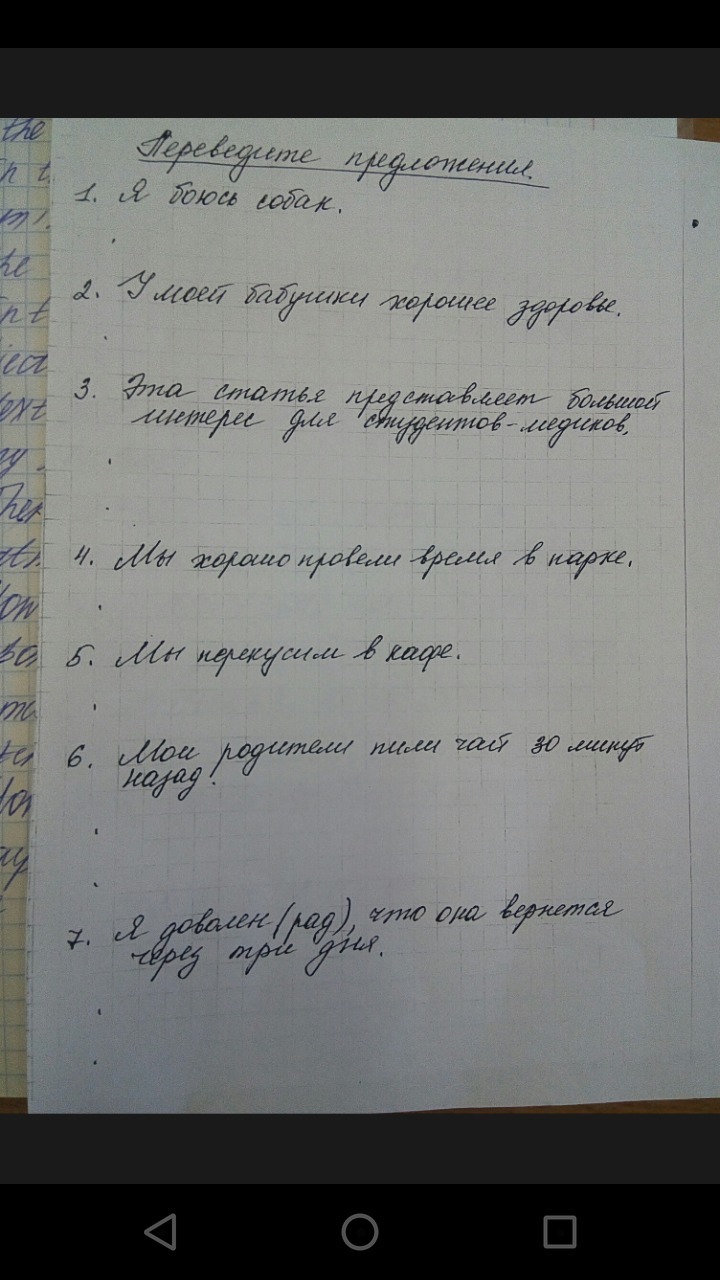 the
Переведите предложения.
1. Я боюсь собак.
2. У моей бабушки хорошее здоровье.
3. Эта статья представляет большой
интерес для студентов-медиков.
4. Мы хорошо провели время в парке.
5. Мы перекусим в кафе.
6. Мои родители пили чай 30 минут
назад.
7. Я доволен (рад), что она вернется
через три дня.